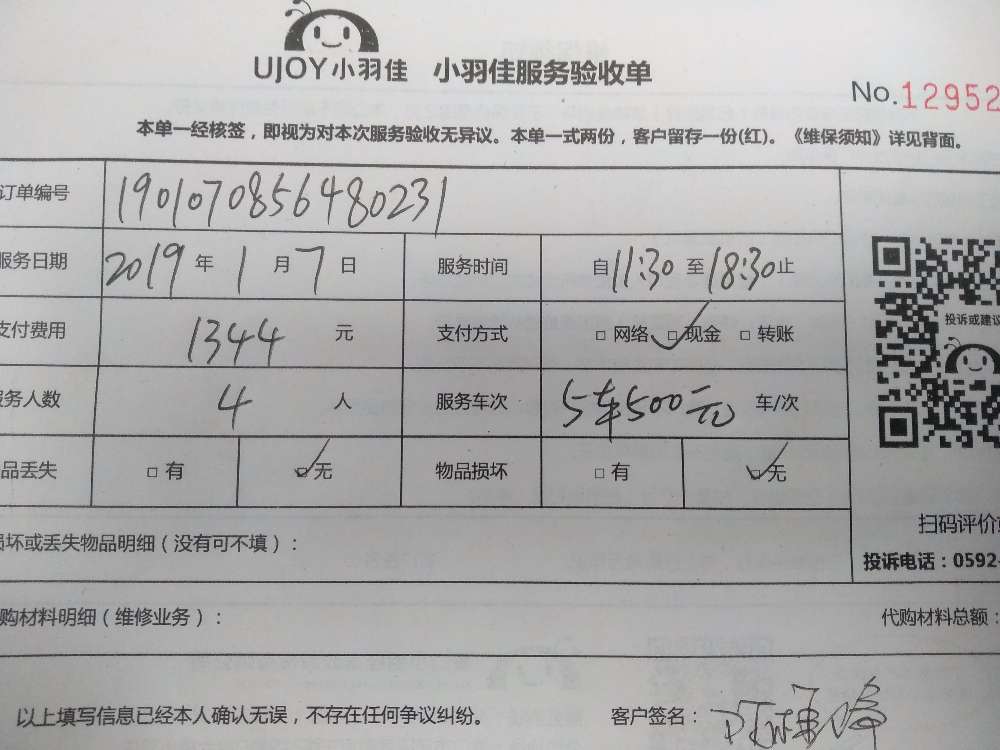 UJOY小羽佳 小羽佳服务验收单
No.12952
本单一经核签，即视为对本次服务验收无异议。本单一式两份，客户留存一份(红)。《维保须知》详见背面。
订单编号 1901070856480231
服务日期 2019 年 1 月 7 日 服务时间 自 11:30 至 18:30 止
支付费用 1344 元 支付方式 □ 网络 ☑ 现金 □ 转账
服务人数 4 人 服务车次 5车500元 车/次
品丢失 □ 有 ☑ 无 物品损坏 □ 有 ☑ 无
投诉或建议
扫码评价
投诉电话：0592-
损坏或丢失物品明细（没有可不填）：
购材料明细（维修业务）： 代购材料总额：
以上填写信息已经本人确认无误，不存在任何争议纠纷。 客户签名：